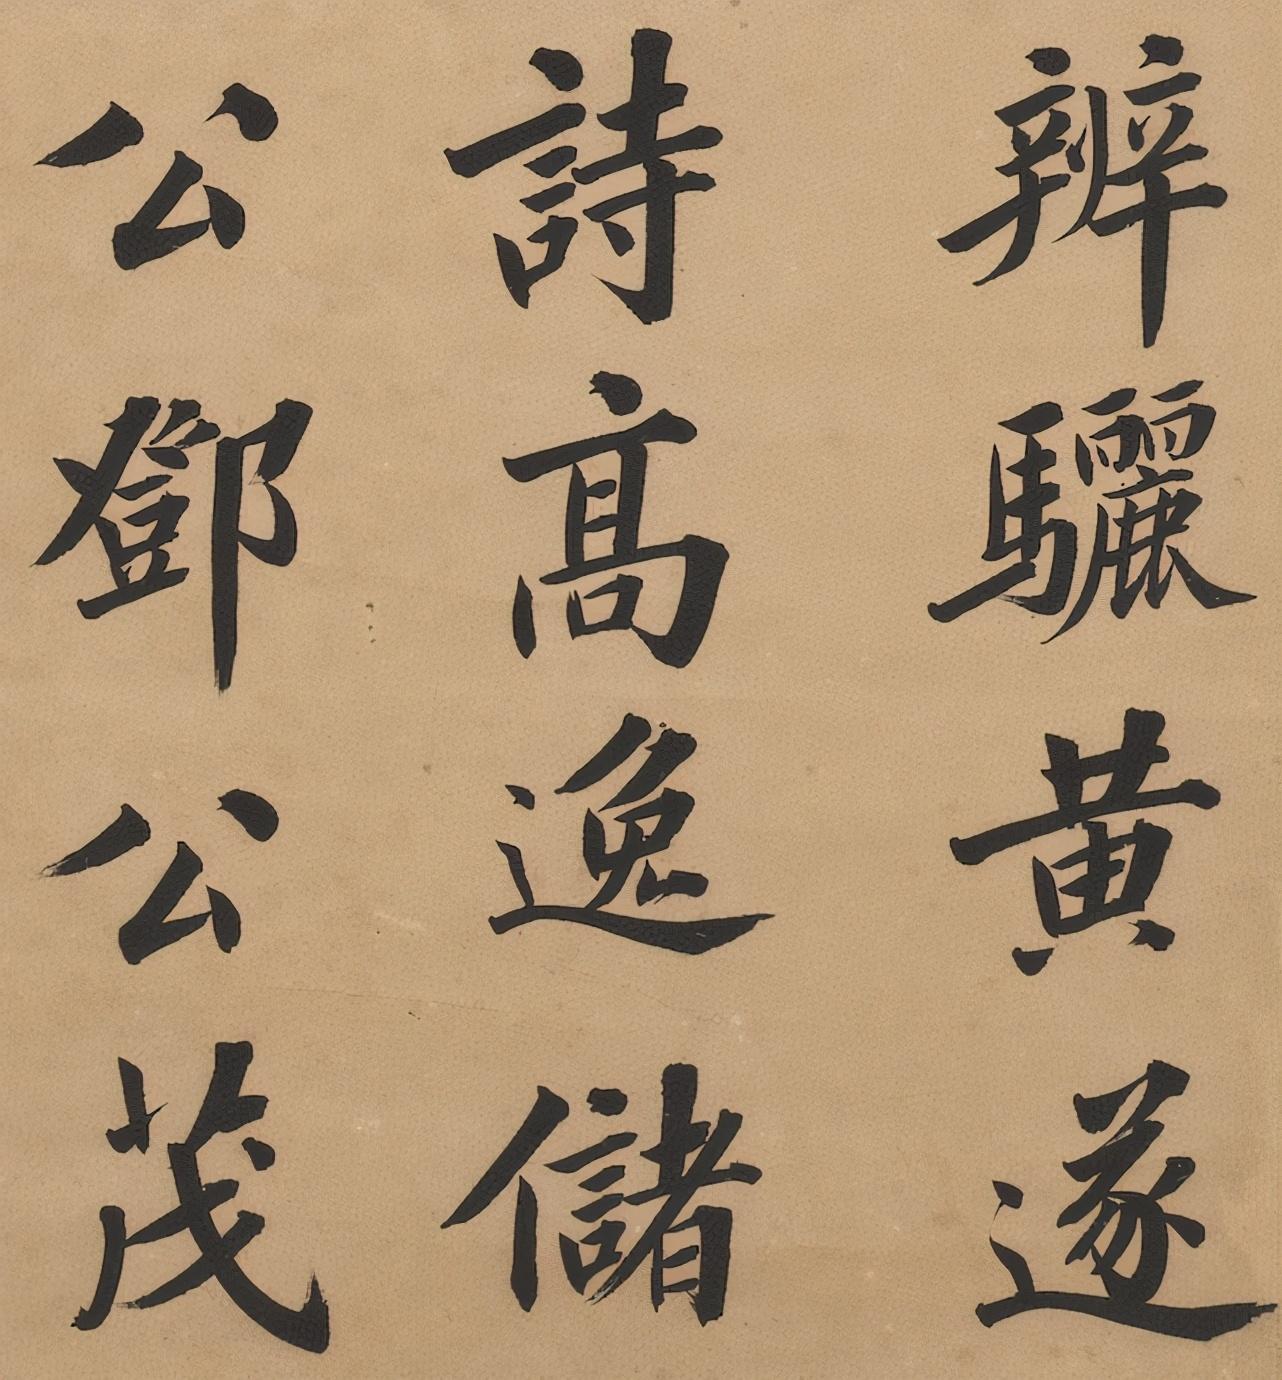 辨驪黄遂
詩高逸儲
公鄧公茂